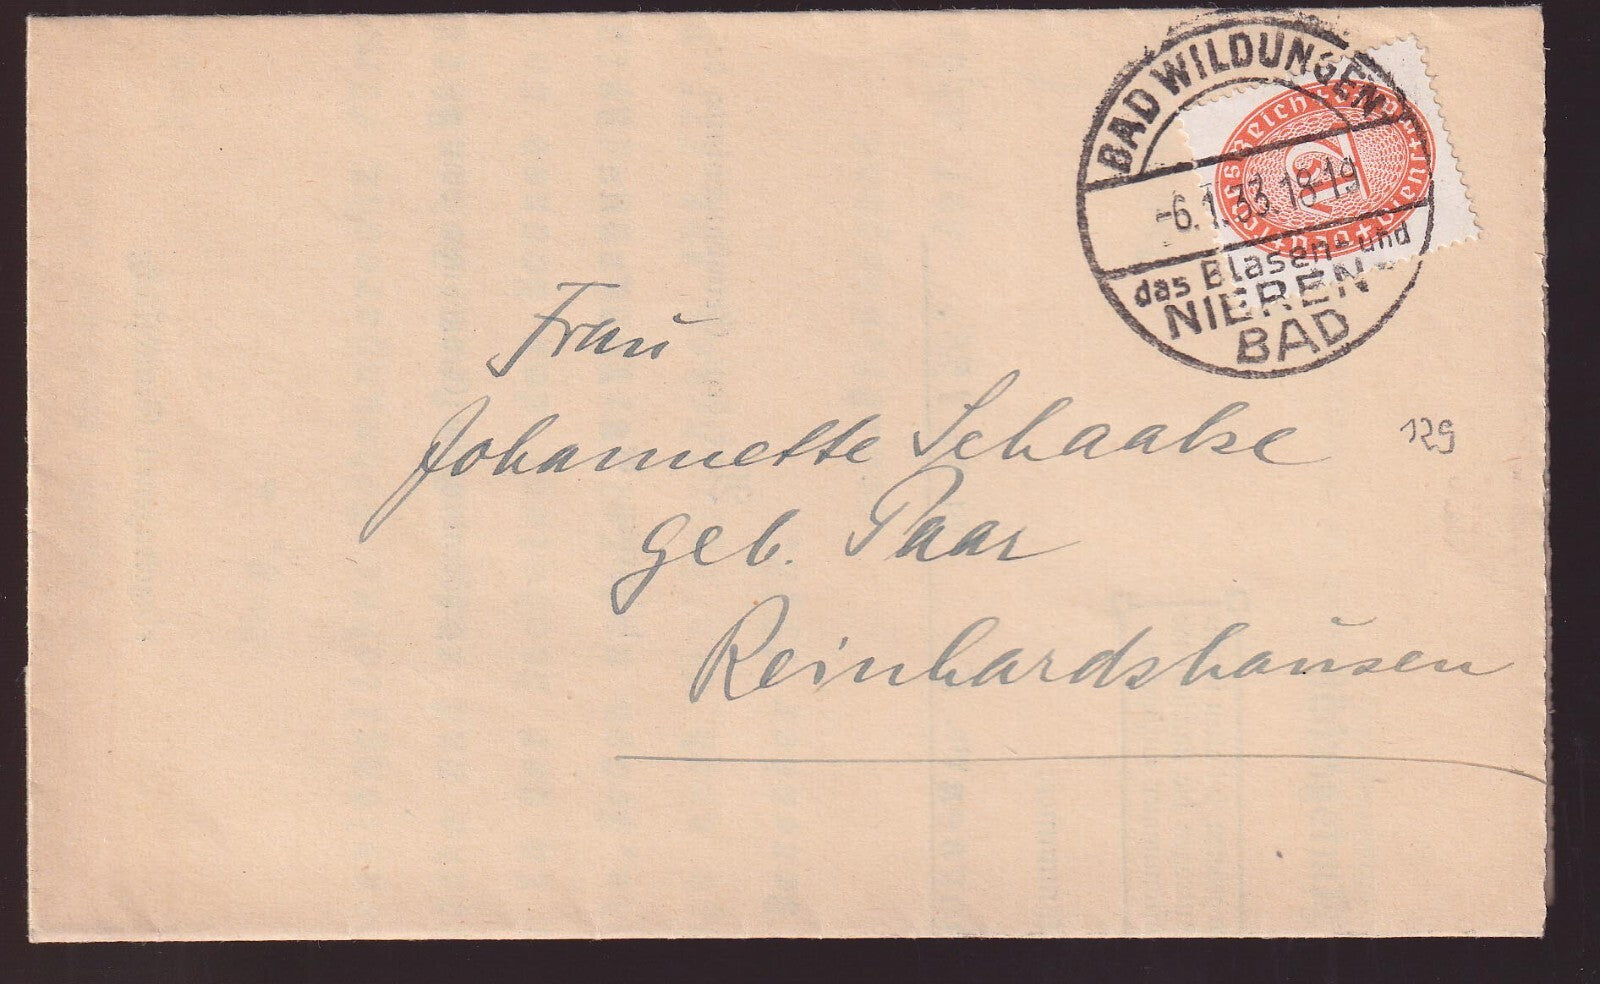 BAD WILDUNGEN
-6.1.33.18-19
das Blasen- und
NIEREN-
BAD
12
Frau
Johannette Schaake
geb. Paar
Reinhardshausen
129